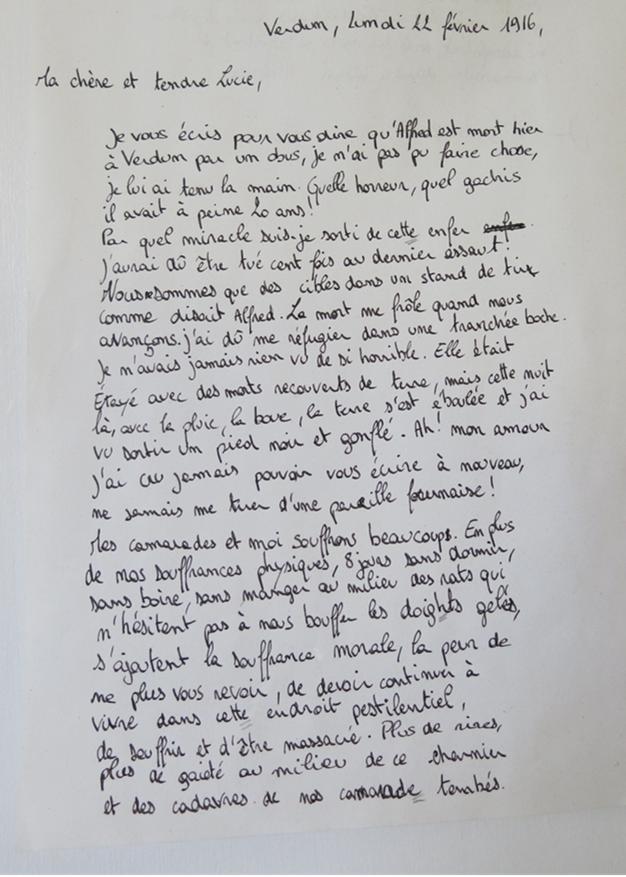 Verdun, lundi 22 février 1916,
Ma chère et tendre Lucie,
Je vous écris pour vous dire qu'Alfred est mort hier
à Verdun par un obus, je n'ai pas pu faire chose,
je lui ai tenu la main. Quelle horreur, quel gachis
il avait à peine 20 ans!
Par quel miracle suis-je sorti de cette enfer enfer.
J'aurai dû être tué cent fois au dernier assaut!
Nous sommes que des cibles dans un stand de tir
comme disait Alfred. La mort me frôle quand nous
avançons. j'ai dû me réfugier dans une tranchée boche.
Je n'avais jamais rien vu de si horrible. Elle était
Étayé avec des morts recouverts de terre, mais cette nuit
là, avec la pluie, la boue, la terre s'est éboulée et j'ai
vu sortir un pied noir et gonflé. Ah! mon amour
J'ai cru jamais pouvoir vous écrire à nouveau,
ne jamais me tirer d'une pareille fournaise!
Mes camarades et moi souffrons beaucoups. En plus
de nos souffrances physiques, 8 jours sans dormir,
sans boire, sans manger au milieu des rats qui
n'hésitent pas à nous bouffer les doights gelés,
s'ajoutent la souffrance morale, la peur de
ne plus vous revoir, de devoir continuer à
vivre dans cette endroit pestilentiel,
de souffrir et d'être massacré. Plus de rires,
plus de gaieté au milieu de ce charnier
et des cadavres de nos camarade tombés.